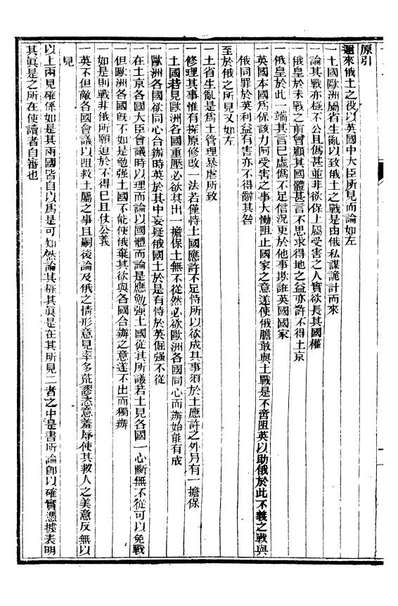 原引
邇來俄土之役以英國中大臣所見而論如左
一土國歐洲屬省生亂以致俄土之戰是由俄私謀詭計而來
論其戰亦極不公且僞甚並非欲保上屬受害之人實欲長其國權
一俄皇於未戰之前曾顧其國體甚言不思求得地之益亦許不得土京
俄皇於此一端其言已虛僞不足信況更於他事欺誰英國國家
英國本國爲保該力阿受害之事大慟阻止國家之意遂使俄膽敢與土戰是不啻阻英以助俄於此不義之戰與
俄同罪於英利益有害亦不得辭其咎
至於俄之所見又如左
一土省生亂是爲土管理暴虐所致
一修理其事惟有探原修改一法若僅恃土國應許不足恃所以欲成其事須於土應許之外另有一擔保
一土國若見歐洲各國重壓必欲其出一擔保土無不從然必欲歐洲各國同心而辦始能有成
歐洲各國欲同心合辦時英於其中妄疑俄國土於是有恃於英倔强不從
一在土京各國大臣會議時以理而論以國體而論是應勉强土國從其所議若土見各國一心斷無不從可以免戰
但歐洲各國旣不如是勉强土國不能使俄棄其欲與各國合辦之意遂不出而獨辦
如是則戰非俄所願廹於不得已且仗公義
一英不但敵各國會議以阻救土屬之事且嗣後論及俄之情形意見率多荒謬恣意羞辱使其救人之美意反無以
見
以上兩見確係如是其兩國皆自以爲是可知然論其確其眞是在其所見二者之中是書所論卽以確實憑據表明
其眞是之所在使讀者自審也